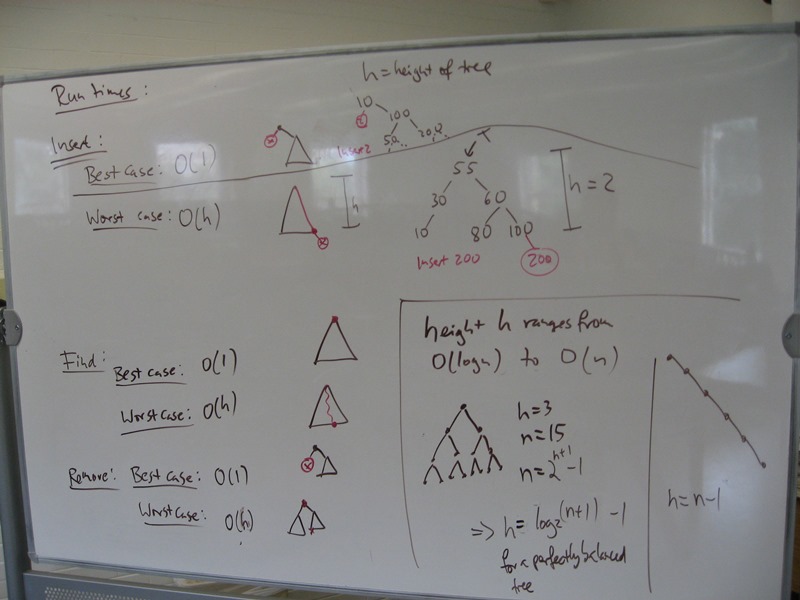 h = height of tree
Run times:
Insert:
Best case: O(1)
Worst case: O(h)
10
2
100
50
200
Insert 2
h
55
30 60
10 80 100
Insert 200
200
h = 2
Find:
Best case: O(1)
Worst case: O(h)
Remove: Best case: O(1)
Worst case: O(h)
height h ranges from
O(log n) to O(n)
h = 3
n = 15
n = 2^h+1 - 1
=> h = log2(n+1) - 1
for a perfectly balanced
tree
h = n-1